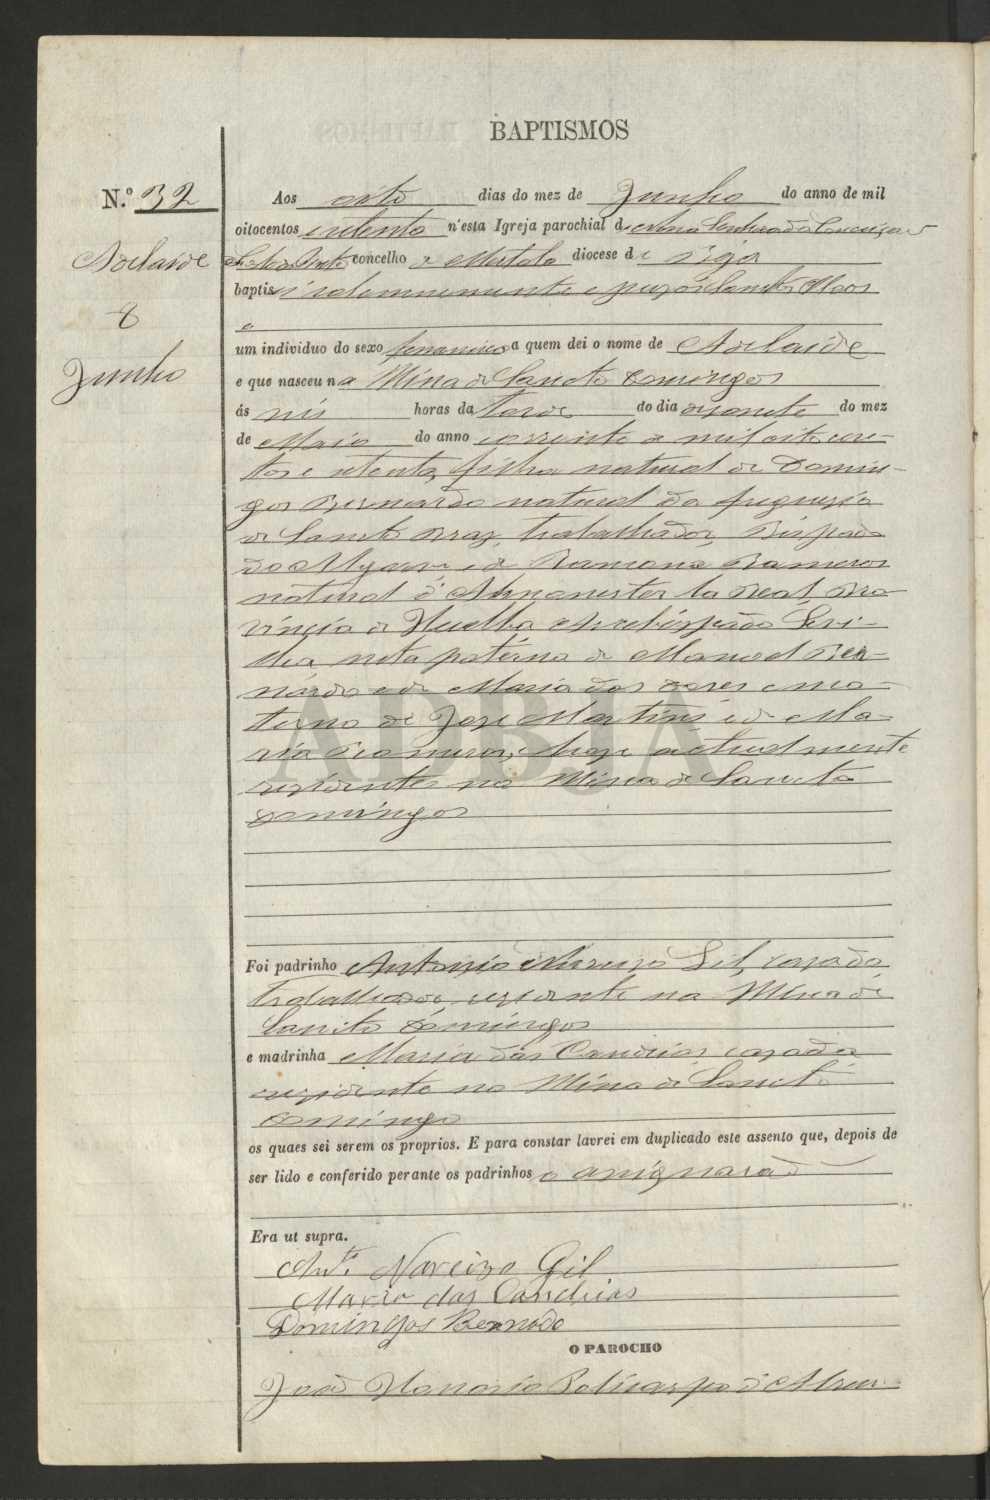 BAPTISMOS
N.º 32
Adelaide
8
Junho
Aos oito dias do mez de Junho do anno de mil
oitocentos e setenta n'esta Igreja parochial de Nossa Senhora da Conceiçaõ
concelho de Mertola diocese de Beja
baptisei solemnemente e puz os Sanctos Oleos
a
um individuo do sexo femenino a quem dei o nome de Adelaide
e que nasceu na Mina de Sancto Domingos
ás seis horas da tarde do dia dezasete do mez
de Maio do anno corrente de mil oito cen-
tos e setenta, filha natural de Domin-
gos Bernardo natural da freguezia
de Sancto Braz, trabalhador, Bispado
do Algarve e de Ramona Rameros
natural d'Almonester la Real, Pro-
vincia de Huelba Arcebispado Sevi-
lha, neta paterna de Manoel Ber-
nardo e de Maria das Dores e ma-
terna de Joze Martins e de Ma-
ria Rameros, hoje actualmente
rezidentes na Mina de Sancto
Domingos
Foi padrinho Antonio Narcizo Gil, cazado
trabalhador, rezidente na Mina de
Sancto Domingos
e madrinha Maria das Candeias cazada
rezidente na Mina de Sancto
Domingos
os quaes sei serem os proprios. E para constar lavrei em duplicado este assento que, depois de
ser lido e conferido perante os padrinhos o assignaraõ
Era ut supra.
Antº. Narcizo Gil
Maria das Candeias
Domingos Bernado
O PAROCHO
João Honorio Policarpo d'Abreu
ADBJA